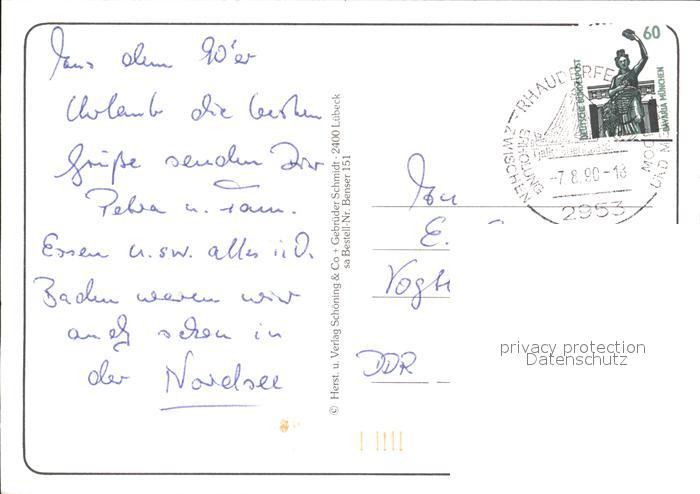 Aus dem 90'er
Urlaub die besten
Grüße senden Dir
Petra u. Fam.
Essen u.sw. alles i.O.
Baden waren wir
auch schon in
der Nordsee
© Herst. u. Verlag Schöning & Co + Gebrüder Schmidt · 2400 Lübeck
sa Bestell-Nr. Benser 151
60
DEUTSCHE BUNDESPOST
BAVARIA MÜNCHEN
RHAUDERFE
ERHOLUNG
ZWISCHEN
MOOR
UND ME
-7.8.90-18
2953
E.
Vogt
DDR
privacy protection
Datenschutz